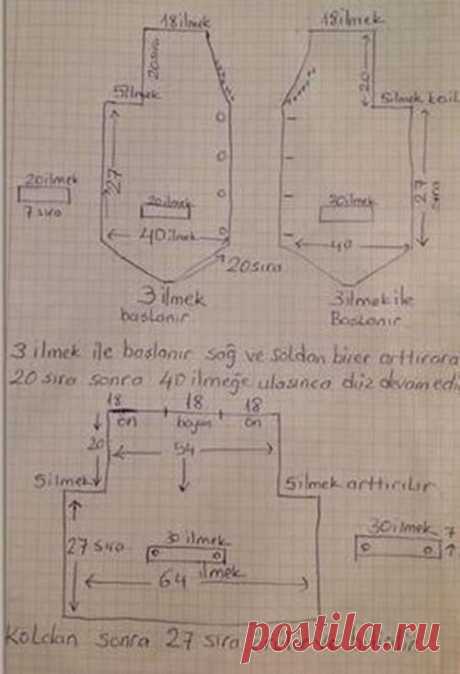 18 ilmek 18 ilmek
20 sıra 20
5 ilmek 5 ilmek
27 27 sıra
20 ilmek 20 ilmek 20 ilmek
7 sıra
40 ilmek 40
20 sıra
3 ilmek 3 ilmek ile
başlanır Başlanır
3 ilmek ile başlanır sağ ve soldan birer
20 sıra sonra 40 ilmeğe ulaşınca düz
18 18 18
ön boyun ön
20 54
5 ilmek 5 ilmek arttırılır
27 sıra 30 ilmek 30 ilmek 7
64 ilmek
Koldan sonra 27 sıra
postila.ru